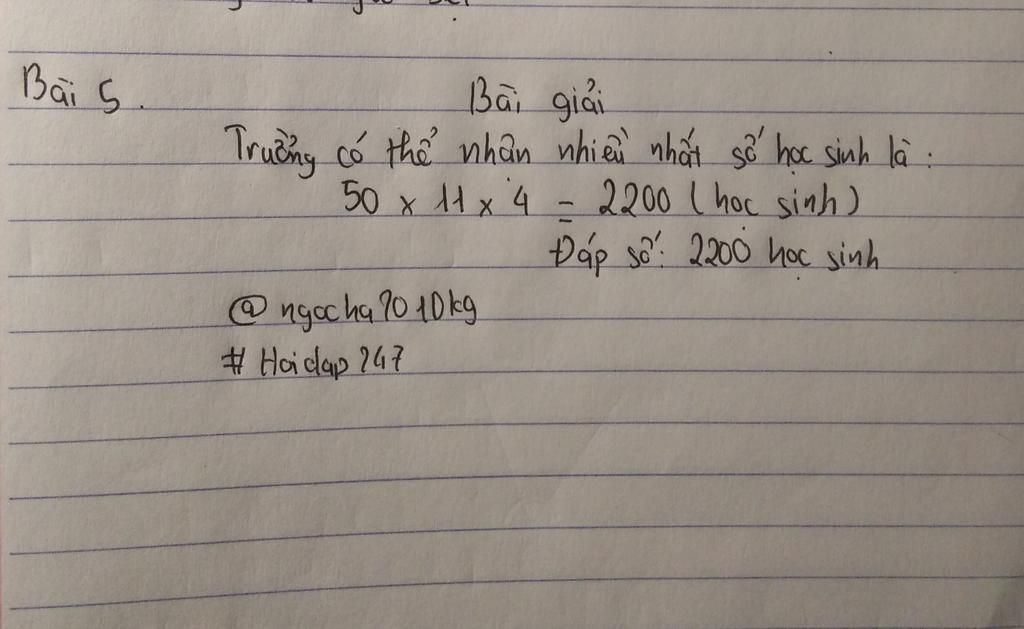 Bài 5.
Bài giải
Trưởng có thể nhân nhiều nhất số học sinh là:
50 x 11 x 4 = 2200 (học sinh)
Đáp số: 2200 học sinh
@ngocha2010kg
#Hoidap247